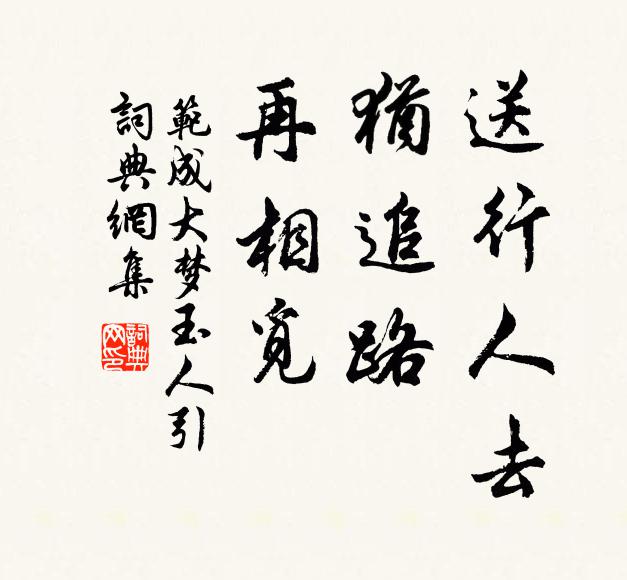 送行人去
猶追路
再相覓
範成大梦玉人引
詞典網集
詞典网印